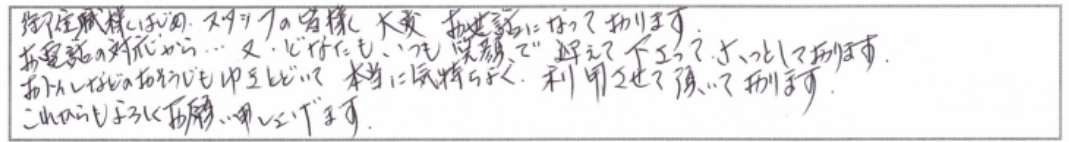 御住職様はじめ、スタッフの皆様に大変お世話になっております。
お電話の対応から… 又、どなたも、いつも笑顔で迎えて下さって、ほっとしております。
おトイレなどのおそうじも行きとどいて本当に気持ちよく、利用させて頂いております。
これからもよろしくお願い申し上げます。